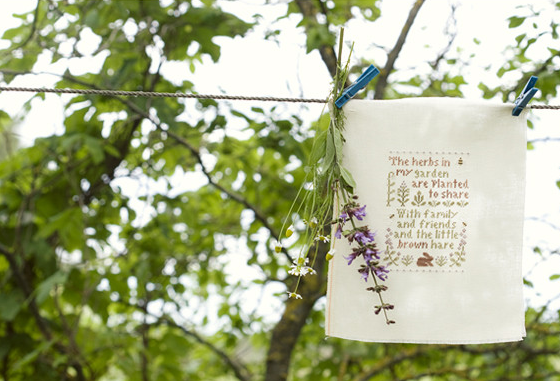 The herbs in
my garden
are planted
to share
With family
and friends
and the little
brown hare